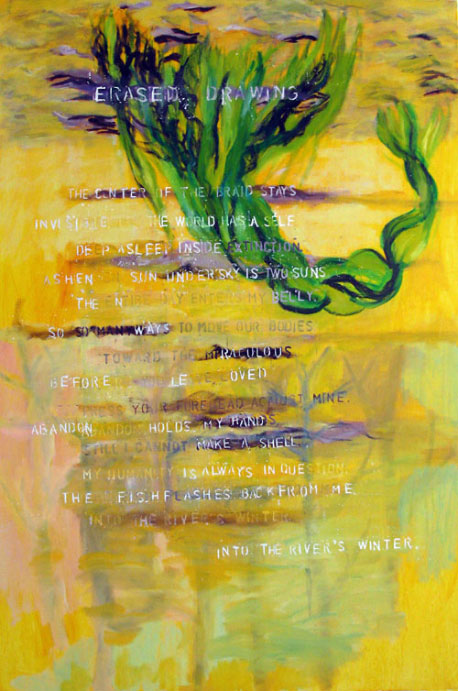 ERASED DRAWING
THE CENTER OF THE BRAID STAYS
INVISIBLE THE WORLD HAS A SELF
DEEP ASLEEP INSIDE EXTINCTION
SUN UNDER SKY IS TWO SUNS
THE ENTERS MY BELLY.
SO SO MANY WAYS TO MOVE OUR BODIES
TOWARD THE MIRACULOUS
BEFORE LOVED
PRESS YOUR FOREHEAD AGAINST MINE.
ABANDON ABANDON HOLDS MY HANDS.
STILL I CANNOT MAKE A SHELL.
MY HUMANITY IS ALWAYS IN QUESTION.
THE FISH FLASHES BACK FROM ME.
INTO THE RIVER'S WINTER.
INTO THE RIVER'S WINTER.